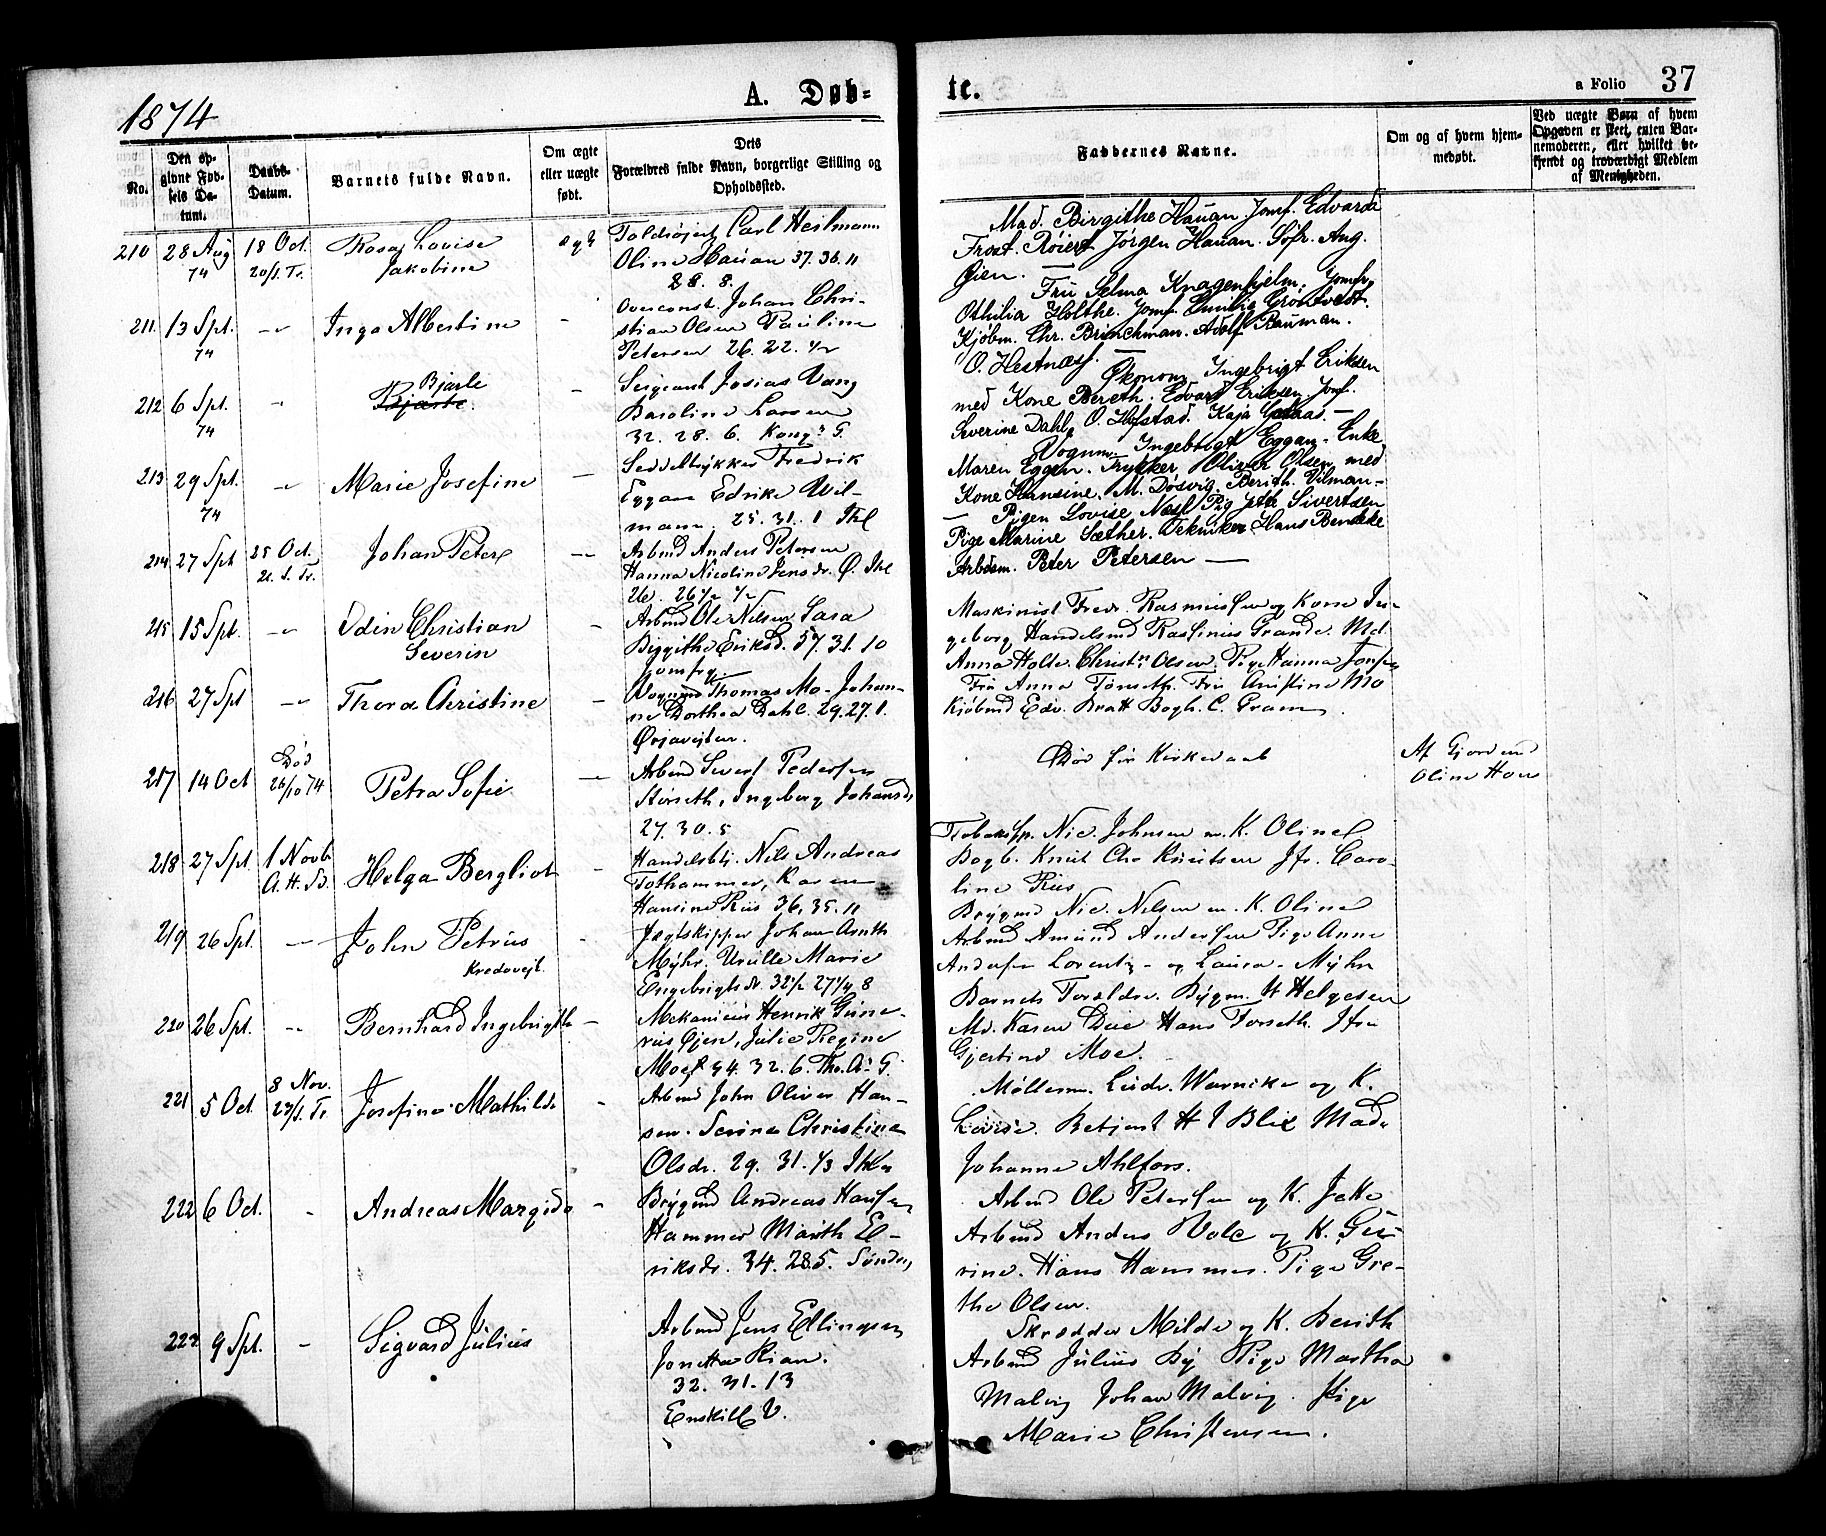 1874
A. Døb-
te.
a Folio 37
No.
Den op-
givne Fød-
sels Da-
tum.
Daabs-
Datum.
Barnets fulde Navn.
Om ægte
eller uægte
født.
Dets
Forældres fulde Navn, borgerlige Stilling og
Opholdssted.
Faddernes Navne.
Om og af hvem hjem-
medøbt.
Ved uægte Børn af hvem
Opgaven er skeet, enten Bar-
nemoderen, eller hvilket be-
kjendt og troværdigt Medlem
af Menigheden.
210 28 Aug 74
18 Oct.
20/S. Tr.
Rosa Lovise
Jakobine
ægt
Carl Heilmann
Oline Hauan 37. 36. 11
28. 8.
Mad. Birgithe Hauan. Jomf. Edvarda
Frost. Røiert Jørgen Hauan. Sofr. Aug.
Øien. —
211 13 Spt. 74
Inga Albertine
Overconst. Johan Chri-
stian Olsen Pauline
Petersen 26. 22. 1/2
Fru Selma Knagenhjelm. Jomfr.
Othilia Holthe. Jomf. Emilie Grøntvedt.
Kjøbm. Chr. Brinchman. Adolf Bauman.
O. Hestnæss. —
212 6 Spt. 74
Bjarle
Bjarte
Sergeant Josias Vang
Baroline Larsen
32. 28. 6. Kong. G.
Økonom Ingebrigt Eriksen
med Kone Bereth. Edvart Eriksen Jomf.
Severine Dahl, O. Hofstad. Kaja —
213 29 Spt. 74
Marie Josefine
Seddeltrykker Fredrik
Eggan Edrike Wil-
mann. 25. 31. 1 Ihl
Vognm. Ingebrigt Eggan. Enke
Maren Eggen. Trykker Oliver Olsen med
Kone Hansine. M. Døsvig. Berith. Vilman —
214 27 Spt
25 Oct.
21. S. Tr.
Johan Peter
Arbmd Anders Petersen
Hanna Nicoline Jensdr. Ø. Ihl
26. 26 1/2 1/2
Pigen Lovise Næsl Pig Sivertsen
Pige Marine Sæther. Tekniker Hans Bendeke
Arbdsm. Peter Petersen —
215 15 Spt.
Odin Christian
Severin
Arbmd Ole Nelsen Sara
Birgithe Eriksd. 37. 31. 10
Maskinist Fredr. Rasmussen og Kone In-
geborg Handelsmd Rasinus Grande. Md.
Anna Holte. Christn Olsen. Pige Hanna
216 27 Spt
Thora Christine
Vognmd Thomas Mo. Johan-
ne Dorthea Dahl. 29. 27. 1.
Ørjavejten.
Fru Anna Tønseth. Fru Christine Mo
Kjøbmd Edv. Bratt Bogh. C. Fram
217 14 Oct
Død
26/10 74
Petra Sofie
Arbmd Sivert Pedersen
Størseth, Ingeborg Johansd.
27. 30. 5
Død før Kirkedaab
Af Gjordmd
Oline Hou
218 27 Spt
1 Novb.
A. H. D.
Helga Bergliot
Handelsbtj. Nils Andreas
Tothammer, Karen
Hansine Riis 36. 35. 11
Tobaksp. Nic. Johnsen m. K. Oline
Bogb. Knut Chr Knutsen Jfr. Caro-
line Riis
219 26 Spt.
John Petrus
Kredovejt.
Jægtskipper Johan Arnth
Mÿhr. Urille Marie
Engebrigtsdr. 32 1/2 27 1/4 8
Brÿgmd Nic. Nelsen m. K. Oline
Arbmd Amund Andersen Pige Anne
Andersen Lorentz - og Laura - Mÿhr
220 26 Spt.
Bernhard Ingebrigth
Mekanicus Henrik Guner-
rus Øjen, Julie Regine
Moe 34. 32. 6. Tho. A. G.
Barnets Forældre. Bÿgm. H Helgesen
Md. Karen Due Hans Forseth. Jfr
Gjertine Moe.
221 5 Oct.
8 Nov.
23/S. Tr
Josefine Mathilde
Arbmd John Oliver Han-
sen. Serine Christine
Olsdr. 29. 31. 1/3 Ihlen
Møllerm. Ludv. Warnike og K.
Lovise. Betjent H I Blix Mad.
Johanne Ahlfors.
222 6 Oct.
Andreas Margido
Brÿgmd Andreas Hansen
Hammer Marith E-
riksdr. 34. 28. 5. Søndre
Arbmd Ole Petersen og K. Jette
Arbmd Anders Vole og K. Gu-
rine. Hans Hammer. Pige Gre-
the Olsen.
222 9 Spt.
Sigvard Julius
Arbmd Jens Ellingsen
Jonetta Rian.
32. 31. 13
Enskill V.
Skrædder Milde og K. Berith
Arbmd Julius Bÿ Pige Martha
Malvig Johan Malvig. Pige
Marie Christensen.